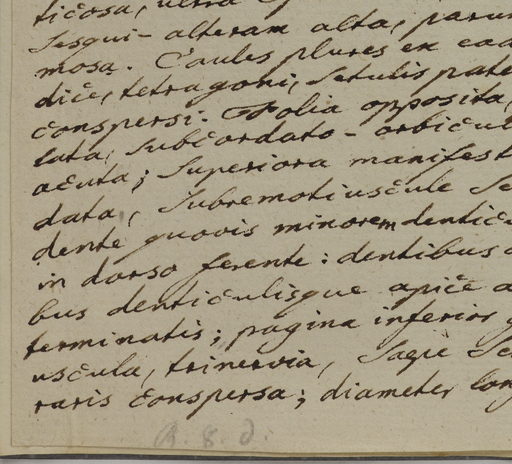 ticosa, ultra
sesqui-alteram alta, parum
mosa. Caules plures ex ead
dice, tetragoni, setulis pate
conspersi. Folia opposita,
lata, subcordato-orbicul
acuta; superiora manifest
data, subremotiuscule se
dente quovis minorem denticu
in dorso ferente: dentibus
bus denticulisque apice a
terminatis; pagina inferior g
uscula, trinervia, saepe se
raris conspersa; diameter long
R. 8. d.